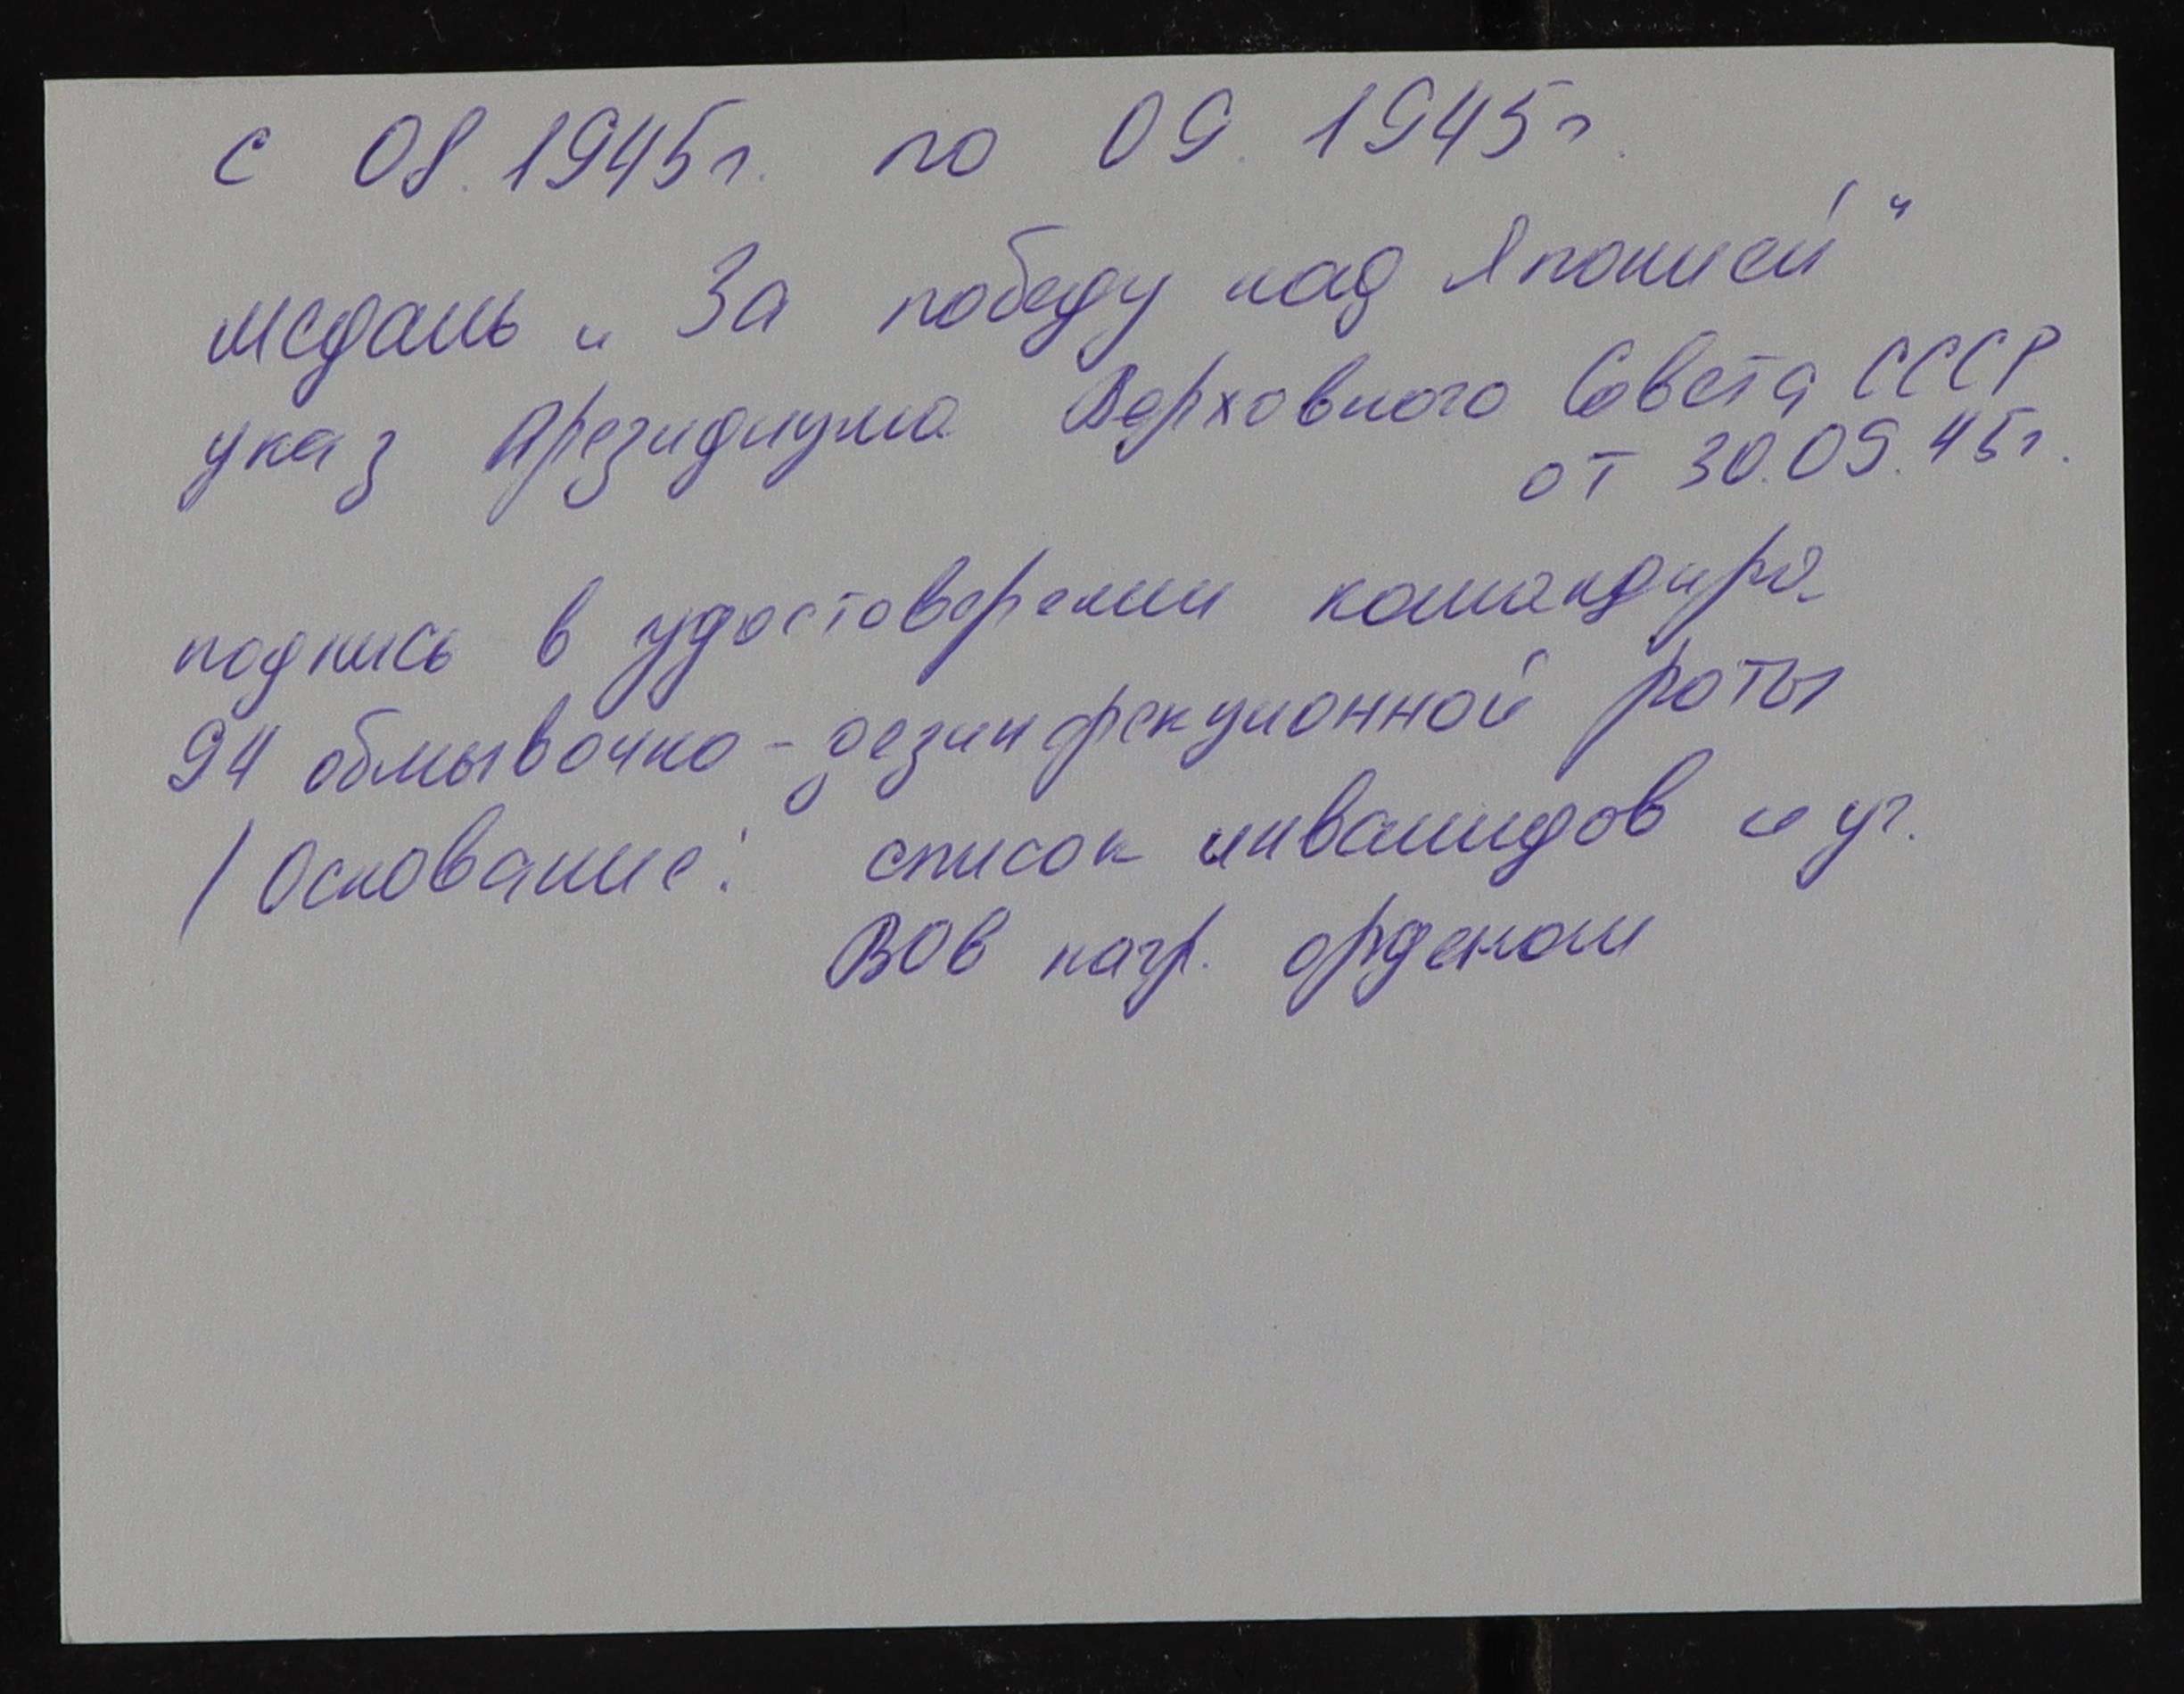 с 08.1945г. по 09.1945г.
медаль „За победу над Японией"
указ Президиума Верховного Совета СССР
от 30.09.45г.
подпись в удостоверении командира
94 обмывочно-дезинфекционной роты
/Основание: список инвалидов и уч.
ВОВ нагр. орденом